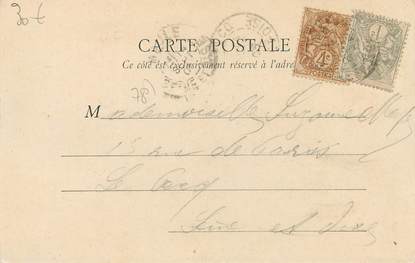 30 €
CARTE POSTALE
Ce côté est exclusivement réservé à l'adre
78)
Mademoiselle Suzanne
rue de Paris
Le Pecq
Seine et Oise